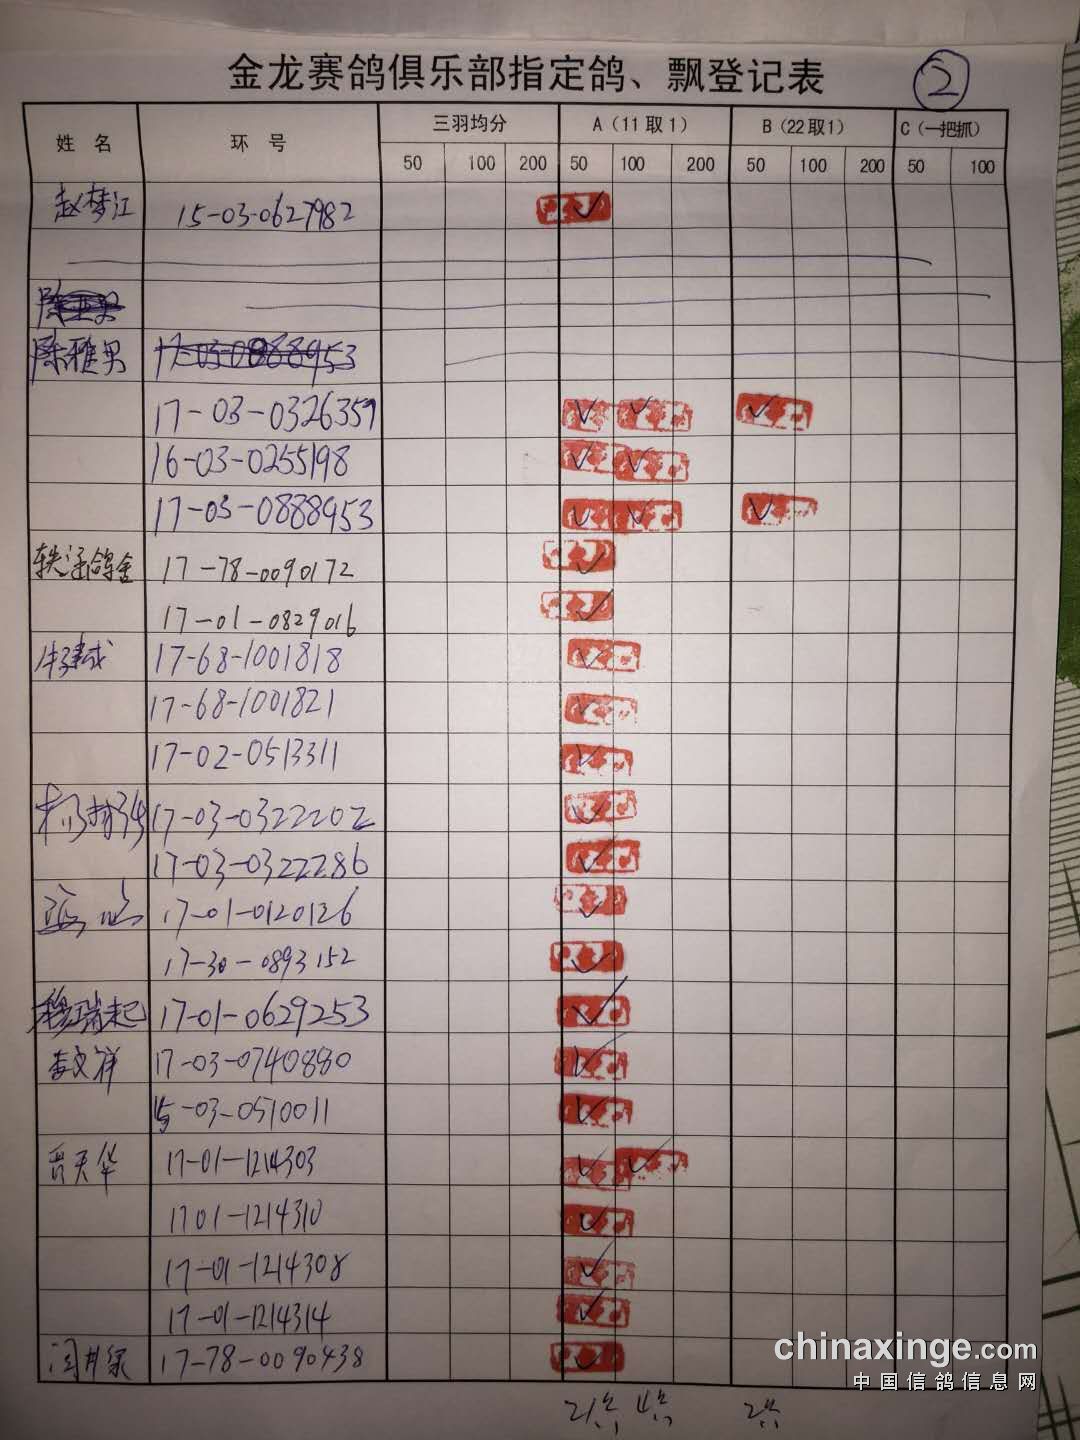 金龙赛鸽俱乐部指定鸽、飘登记表 2
姓 名 环 号 三羽均分 A(11取1) B(22取1) C(一把抓)
50 100 200 50 100 200 50 100 200 50 100
赵梦江 15-03-0627982
陈雅男 17-03-0888953
17-03-0326359
16-03-0255198
17-03-0888953
轶涵鸽舍 17-78-0090172
17-01-0829016
17-68-1001818
17-68-1001821
17-02-0513311
17-03-0322202
17-03-0322286
17-01-0120126
17-30-0893152
穆瑞起 17-01-0629253
李文祥 17-03-0740880
15-03-0510011
贾天华 17-01-1214303
1701-1214310
17-01-1214308
17-01-1214314
17-78-0090438
chinaxinge.com
中国信鸽信息网